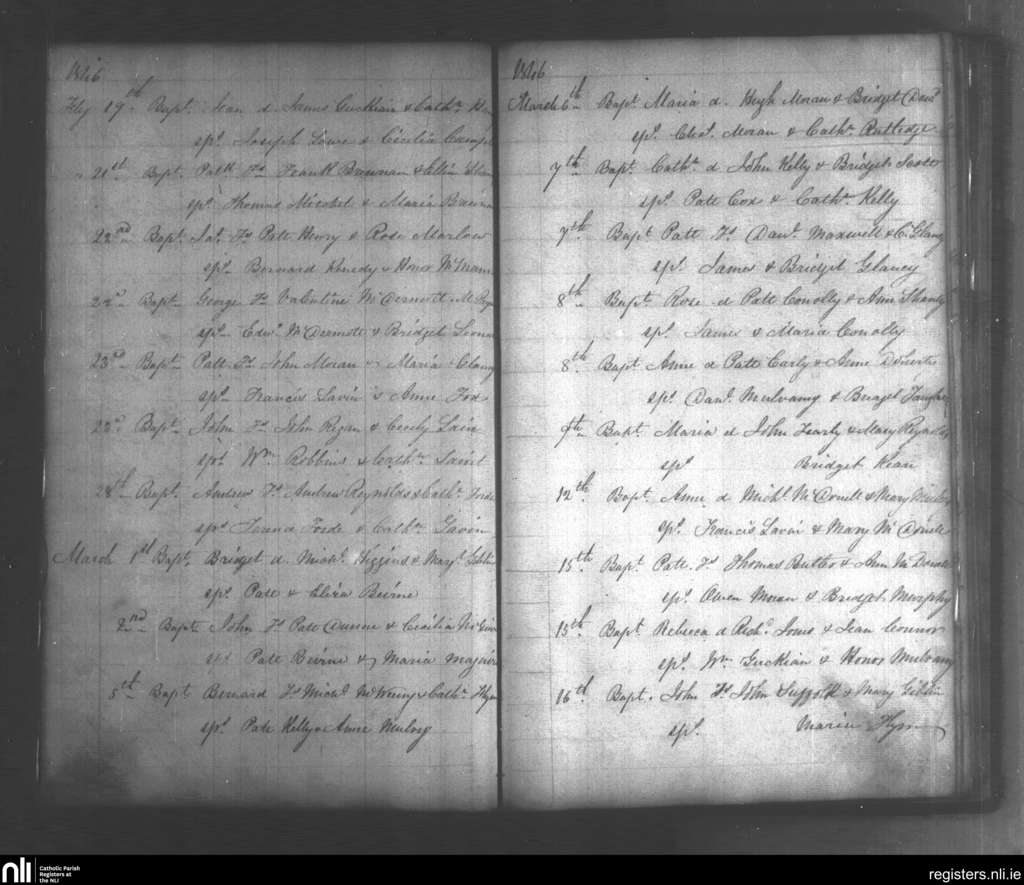 1846
Feby 19th Bapt. Jean d. James Guckian & Cathn.
sps. Joseph Lowe & Cecilia
21st Bapt. Patk Fs Frank Brennan & Ellen
sps. Thomas Michel & Maria
22nd Bapt. Jas. Fs Patt Henry & Rose Marlow
sps. Bernard Kenedy & Honor
22d Bapt. George Fs Valentine McDermott
sps. Edwd. McDermott & Bridget
23rd Bapt. Patt Fs John Moran & Maria Clancy
sps. Francis Lavin & Anne Fox
23d Bapt. John Fs John Regan & Cecily
sps. Wm Robbins & Cathn.
28th Bapt. Andrew Fs Andrew Reynolds & Cathn. Forde
sps. Forde & Cathn. Gavin
March 1st Bapt. Bridget d. Michl. Higgins & Mary
sps. Patt & Eliza Beirne
2nd Bapt. John Fs Patt Dunne & Cecilia
sps Patt Beirne & Maria Maguire
5th Bapt Bernard Fs Michl. & Cathn.
sps. Patt Kelly & Anne
1846
March 6th Bapt. Maria d. Hugh Moran & Bridget
sps. Moran & Cathn. Rutledge
7th Bapt. Cathn. d John Kelly & Bridget
sps. Patt Cox & Cathn. Kelly
7th Bapt Patt Fs Danl. Maxwell & C. Glancy
sps. James & Bridget Glancy
8th Bapt. Rose d Patt Conolly & Ann Shanly
sps. James & Maria Conolly
8th Bapt Anne d Patt Carty & Anne
sps. Danl. Mulvany &
9th Bapt. Maria d John & Mary Reynolds
sps Bridget Kean
12th Bapt. Anne d Michl. McDonell & Mary
sps. Francis Lavin & Mary McDonell
15th Bapt. Patt. Fs Thomas Butler & Ann
sps. Owen Moran & Bridget Murphy
15th Bapt. Rebeca d Richd. & Jean Connor
sps. Wm Guckian & Honor Mulvany
16th Bapt. John Fs John Suffolk & Mary Giblin
sps. Maria Flyn
nli Catholic Parish
Registers at
the NLI
registers.nli.ie